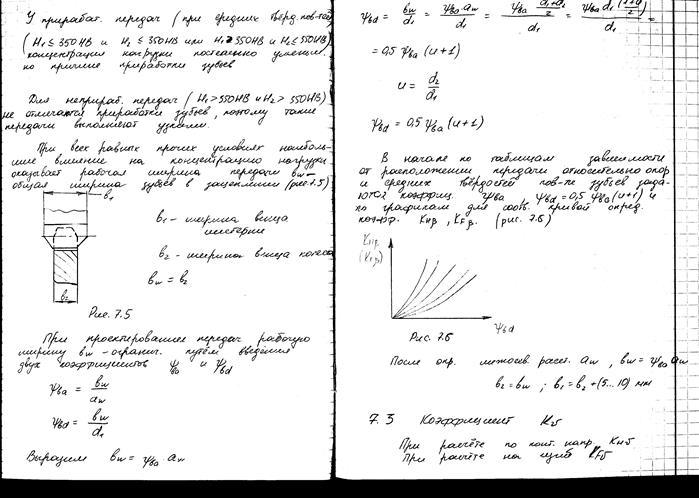 У прирабат. передач (при средних тверд. пов-тей)
(H₁ ≤ 350 HB и H₂ ≤ 350 HB или H₁ ≥ 550 HB и H₂ ≤ 350 HB)
концентрация нагрузки постепенно уменьш.
по причине приработки зубьев
Для неприраб. передач (H₁ > 550 HB и H₂ > 550 HB)
не отличается приработки зубьев, поэтому такие
передачи выполняют узкими.
При всех равных прочих условиях наиболь-
шее влияние на концентрацию нагрузки
оказывает рабочая ширина передачи bw -
общая ширина зубьев в зацеплении (рис 7.5)
b₁
b₁ - ширина венца
шестерни
b₂ - ширина венца колеса
bw = b₂
b₂
Рис. 7.5
При проектирование передач рабочую
ширину bw - огранич. путём введения
двух коэффициентов ψba и ψbd
ψba = bw / aw
ψbd = bw / d₁
Выразим bw = ψba · aw
ψbd = bw / d₁ = ψba aw / d₁ = ψba (d₁+d₂)/2 / d₁ = ψba d₁ (1+u)/2 / d₁ =
= 0,5 ψba (u+1)
u = d₂ / d₁
ψbd = 0,5 ψba (u+1)
В начале по таблицам зависимости
от расположения передачи относительно опор
и средних твёрдостей пов-те зубьев зада-
ются коэффиц. ψba, ψbd = 0,5 ψba (u+1) и
по графикам для соотв. кривой опред.
коэфф. KHβ, KFβ. (рис. 7.6)
KHβ
(KFβ)
ψbd
Рис. 7.6
После опр. межосев. расст. aw, bw = ψba aw
b₂ = bw ; b₁ = b₂ + (5...10) мм
7.3 Коэффициент Kυ
При расчёте по конт. напр. KHυ
При расчёте на изгиб KFυ